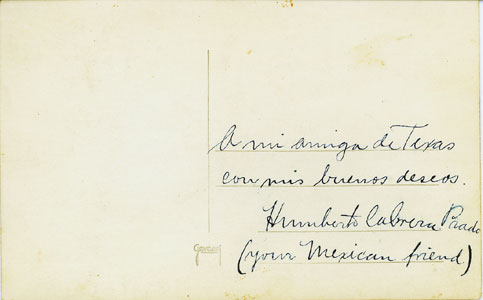 A mi amiga de Texas
con mis buenos deseos.
Humberto Cabrera Prado
(your Mexican friend)